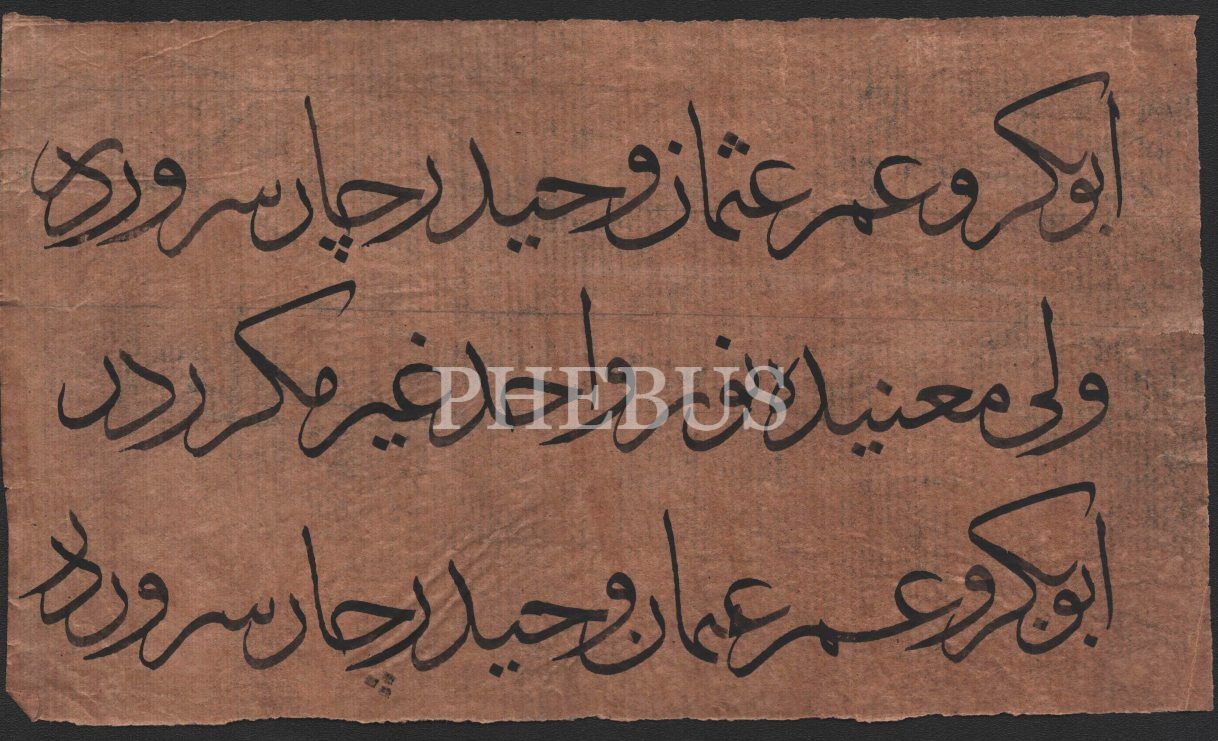 ابوبكر و عمر عثمان و حيدر چار سروردر
ولى معنيده بو نور واحد غير مكرردر
ابوبكر و عمر عثمان و حيدر چار سروردر
PHEBUS